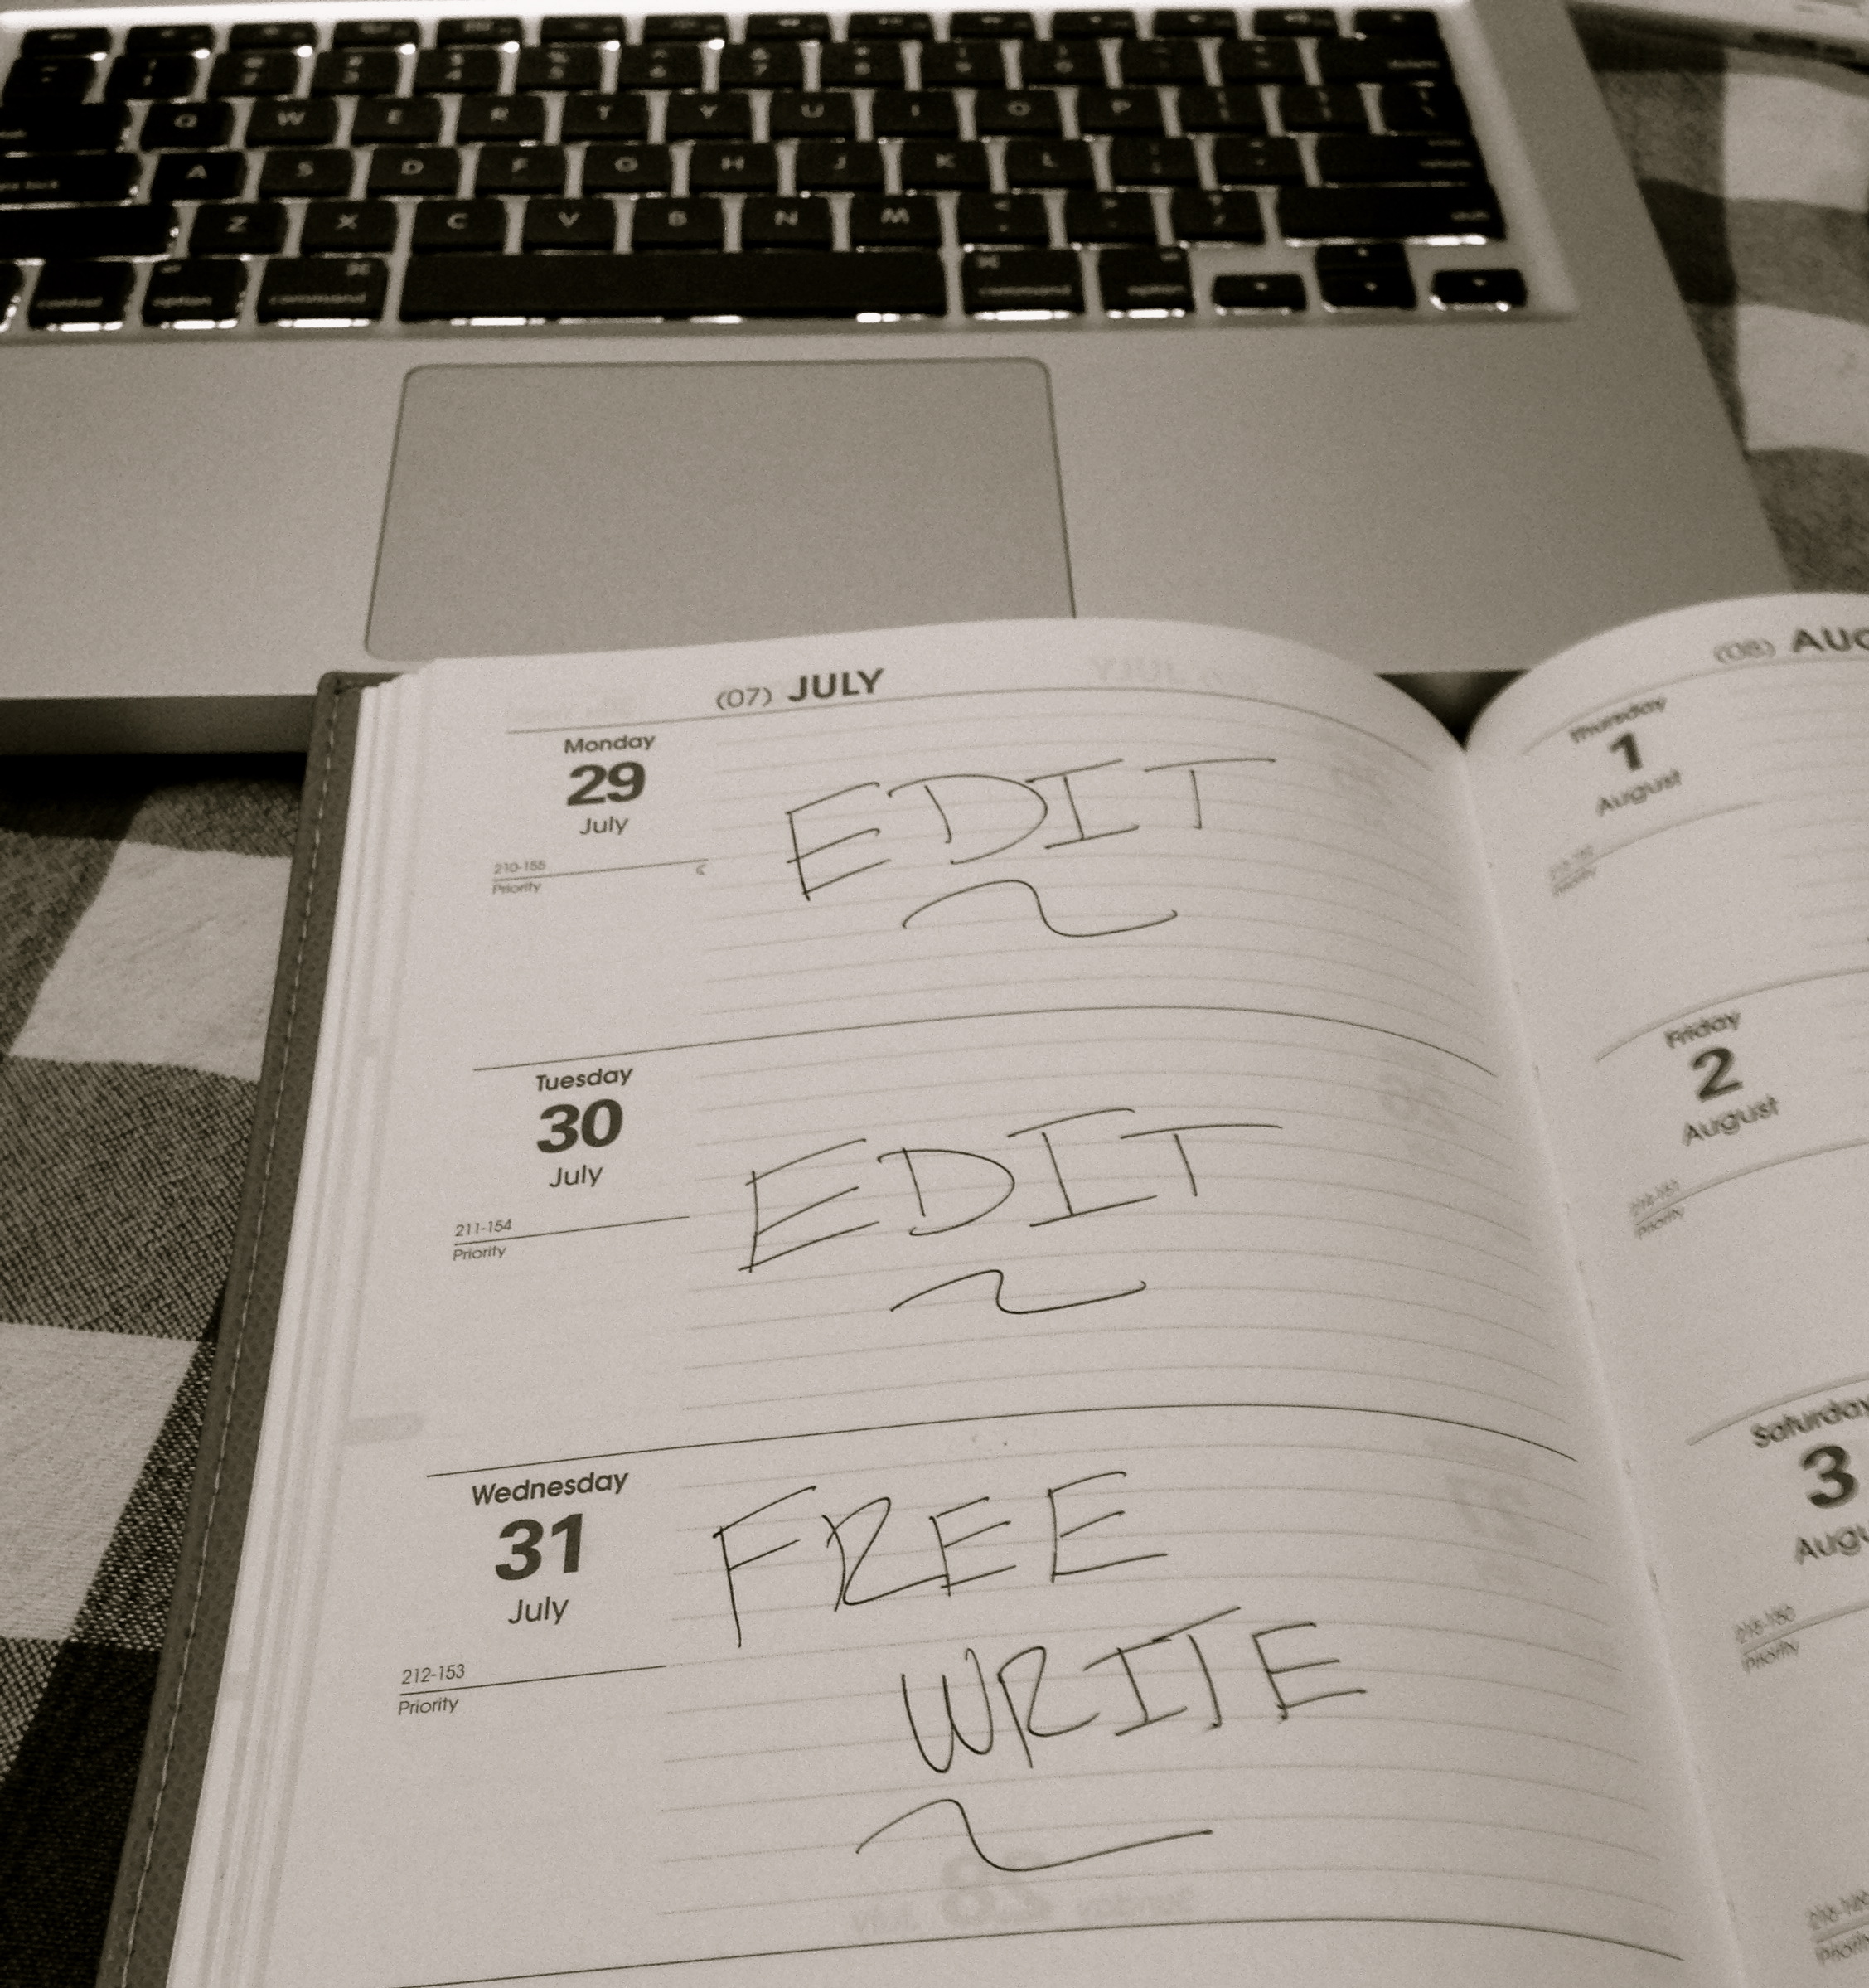 Q W E R T Y U I O P
A S D F G H J K L
Z X C V B N M
control option command command option
(07) JULY
Monday
29
July
210-155
Priority
EDIT
Tuesday
30
July
211-154
Priority
EDIT
Wednesday
31
July
212-153
Priority
FREE
WRITE
(08) AUG
Thursday
1
August
Priority
Friday
2
August
Priority
Saturday
3
Augu
215-150
Priority
Priority